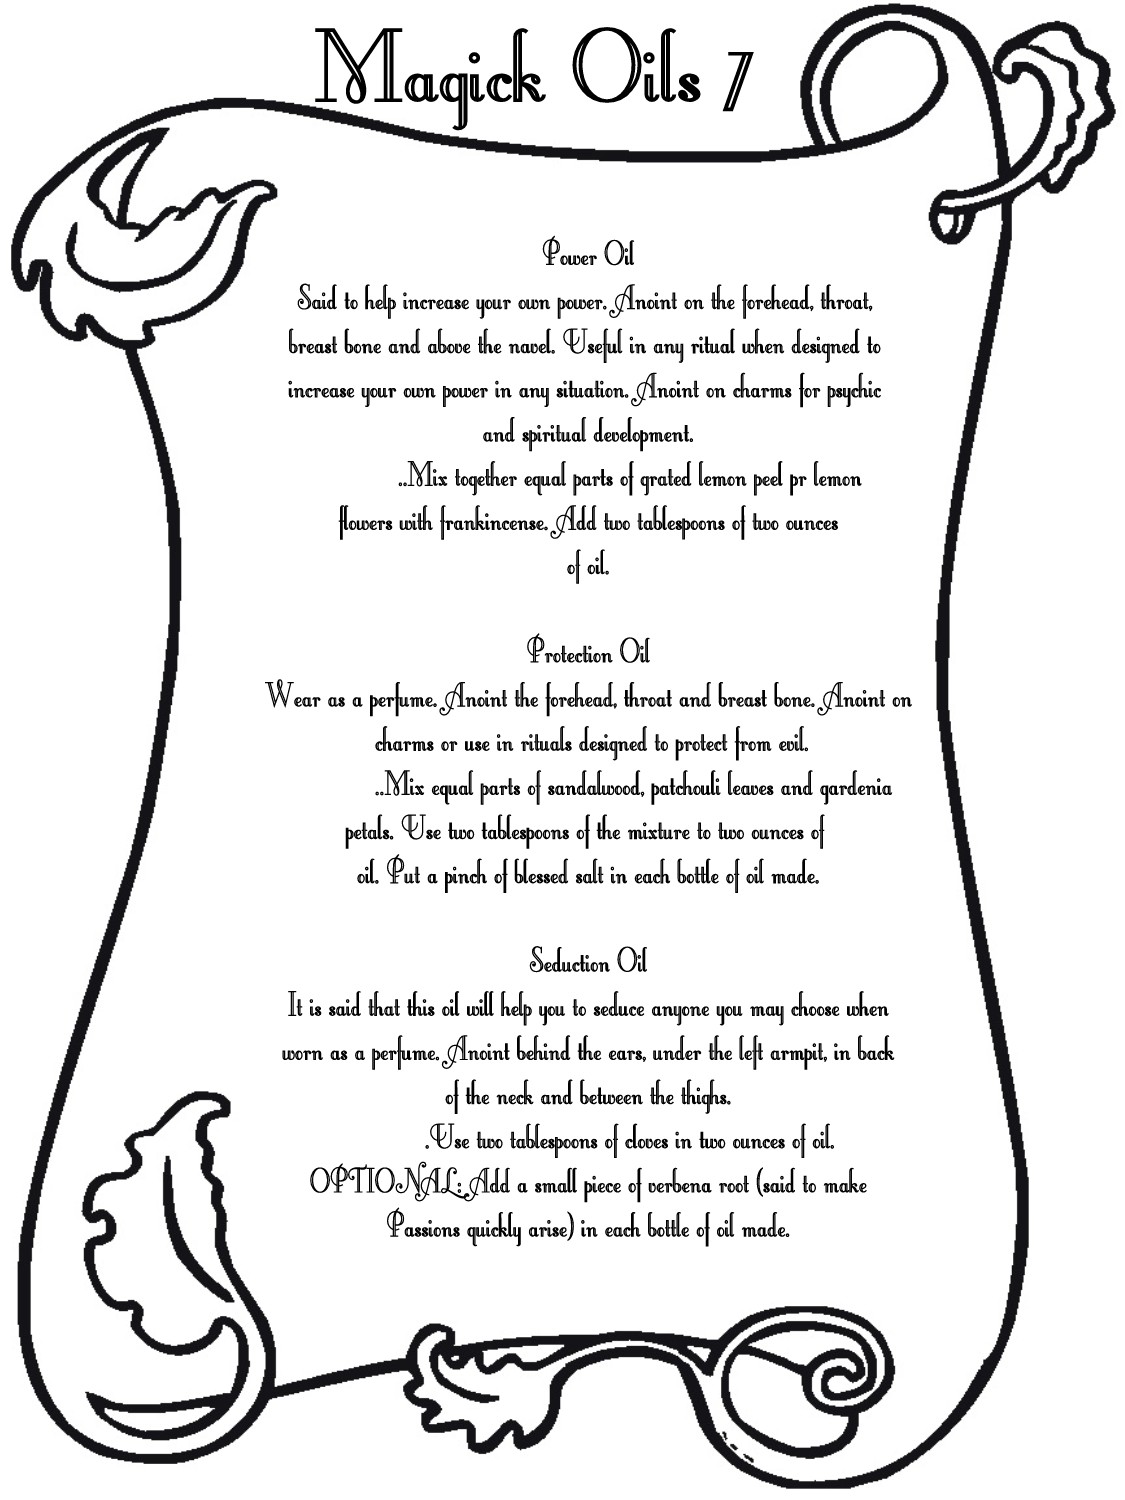 Magick Oils 7
Power Oil
Said to help increase your own power. Anoint on the forehead, throat,
breast bone and above the navel. Useful in any ritual when designed to
increase your own power in any situation. Anoint on charms for psychic
and spiritual development.
..Mix together equal parts of grated lemon peel pr lemon
flowers with frankincense. Add two tablespoons of two ounces
of oil.
Protection Oil
Wear as a perfume. Anoint the forehead, throat and breast bone. Anoint on
charms or use in rituals designed to protect from evil.
..Mix equal parts of sandalwood, patchouli leaves and gardenia
petals. Use two tablespoons of the mixture to two ounces of
oil. Put a pinch of blessed salt in each bottle of oil made.
Seduction Oil
It is said that this oil will help you to seduce anyone you may choose when
worn as a perfume. Anoint behind the ears, under the left armpit, in back
of the neck and between the thighs.
.Use two tablespoons of cloves in two ounces of oil.
OPTIONAL: Add a small piece of verbena root (said to make
Passions quickly arise) in each bottle of oil made.